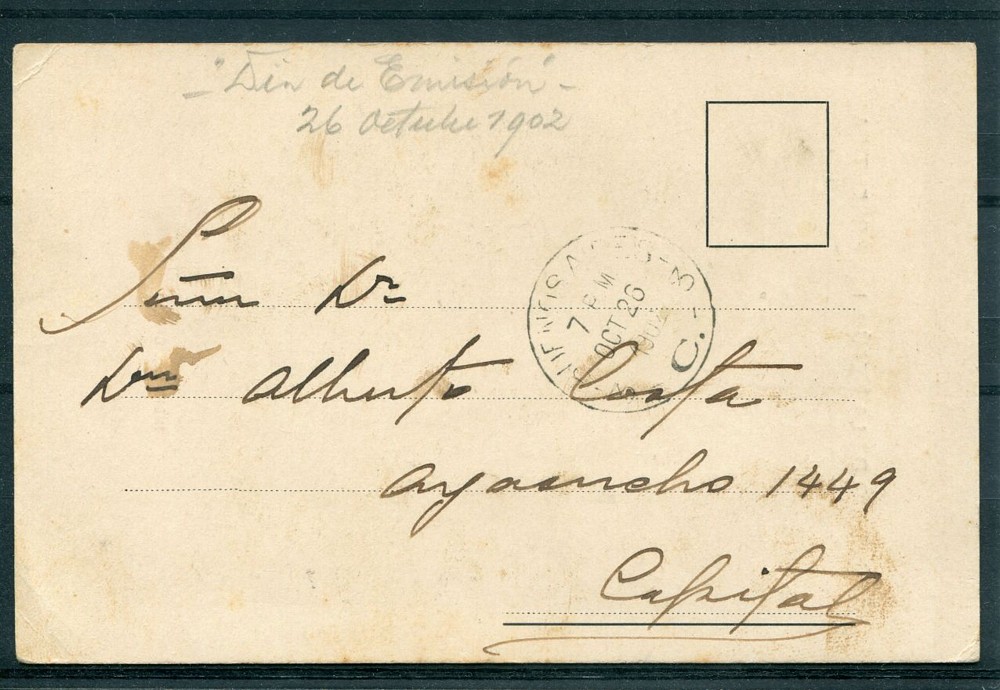 - "Dia de Emisión" -
26 Octubre 1902
Señor Dr
Dn Alberto Costa
Ayacucho 1449
Capital
BUENOS AIRES - 3
7 PM
OCT 26
1902
C.